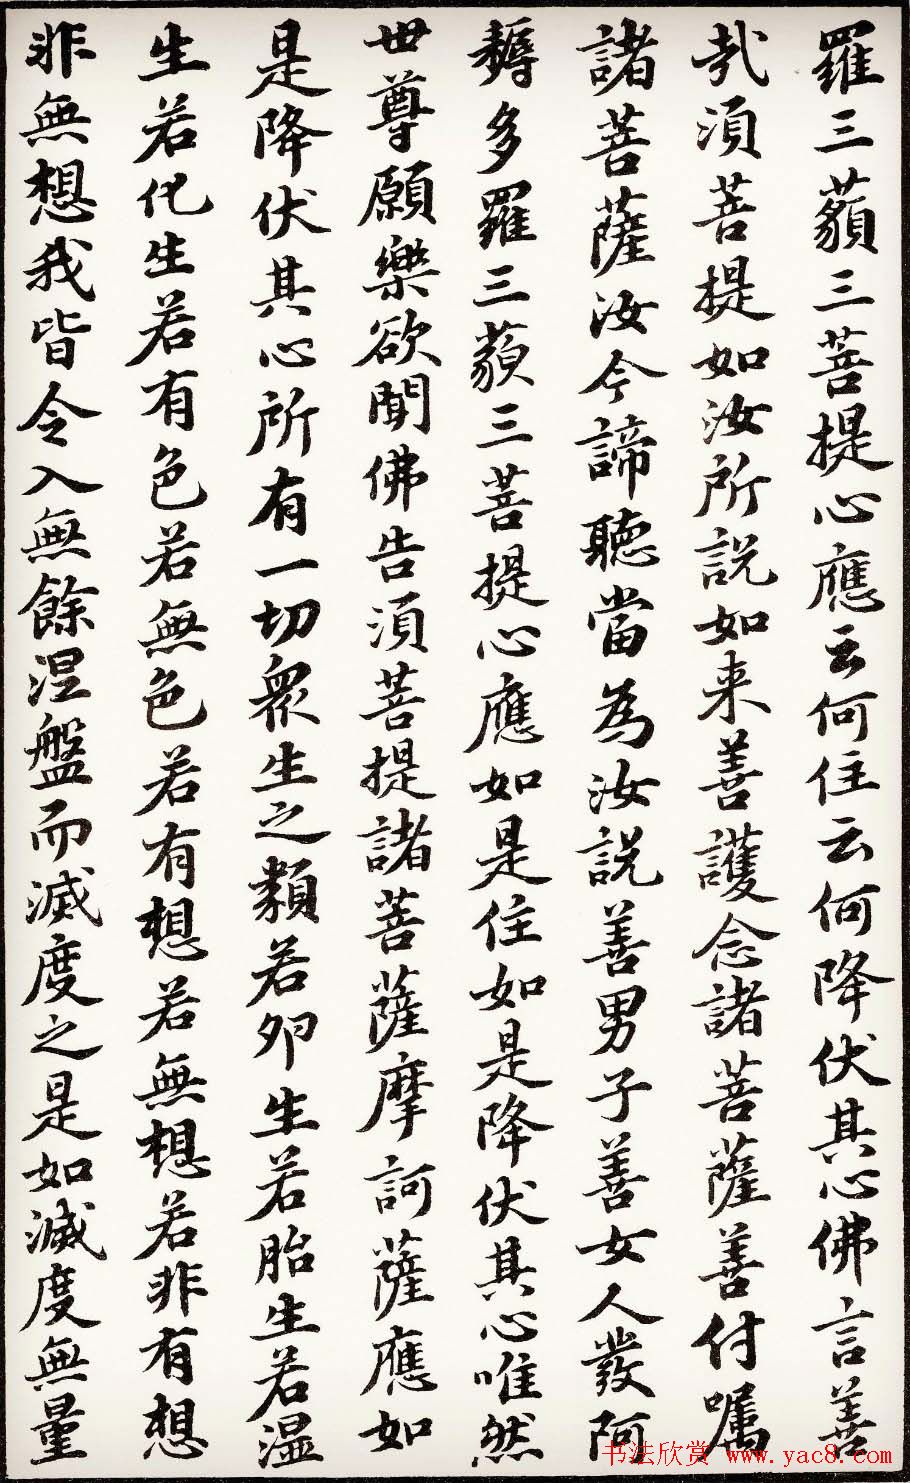 羅三藐三菩提心應云何住云何降伏其心佛言善
哉須菩提如汝所説如来善護念諸菩薩善付嘱
諸菩薩汝今諦聽當為汝説善男子善女人發阿
耨多羅三藐三菩提心應如是住如是降伏其心唯然
世尊願樂欲聞佛告須菩提諸菩薩摩訶薩應如
是降伏其心所有一切衆生之類若卵生若胎生若湿
生若化生若有色若無色若有想若無想若非有想
非無想我皆令入無餘涅盤而滅度之是如滅度無量
书法欣赏 www.yac8.com